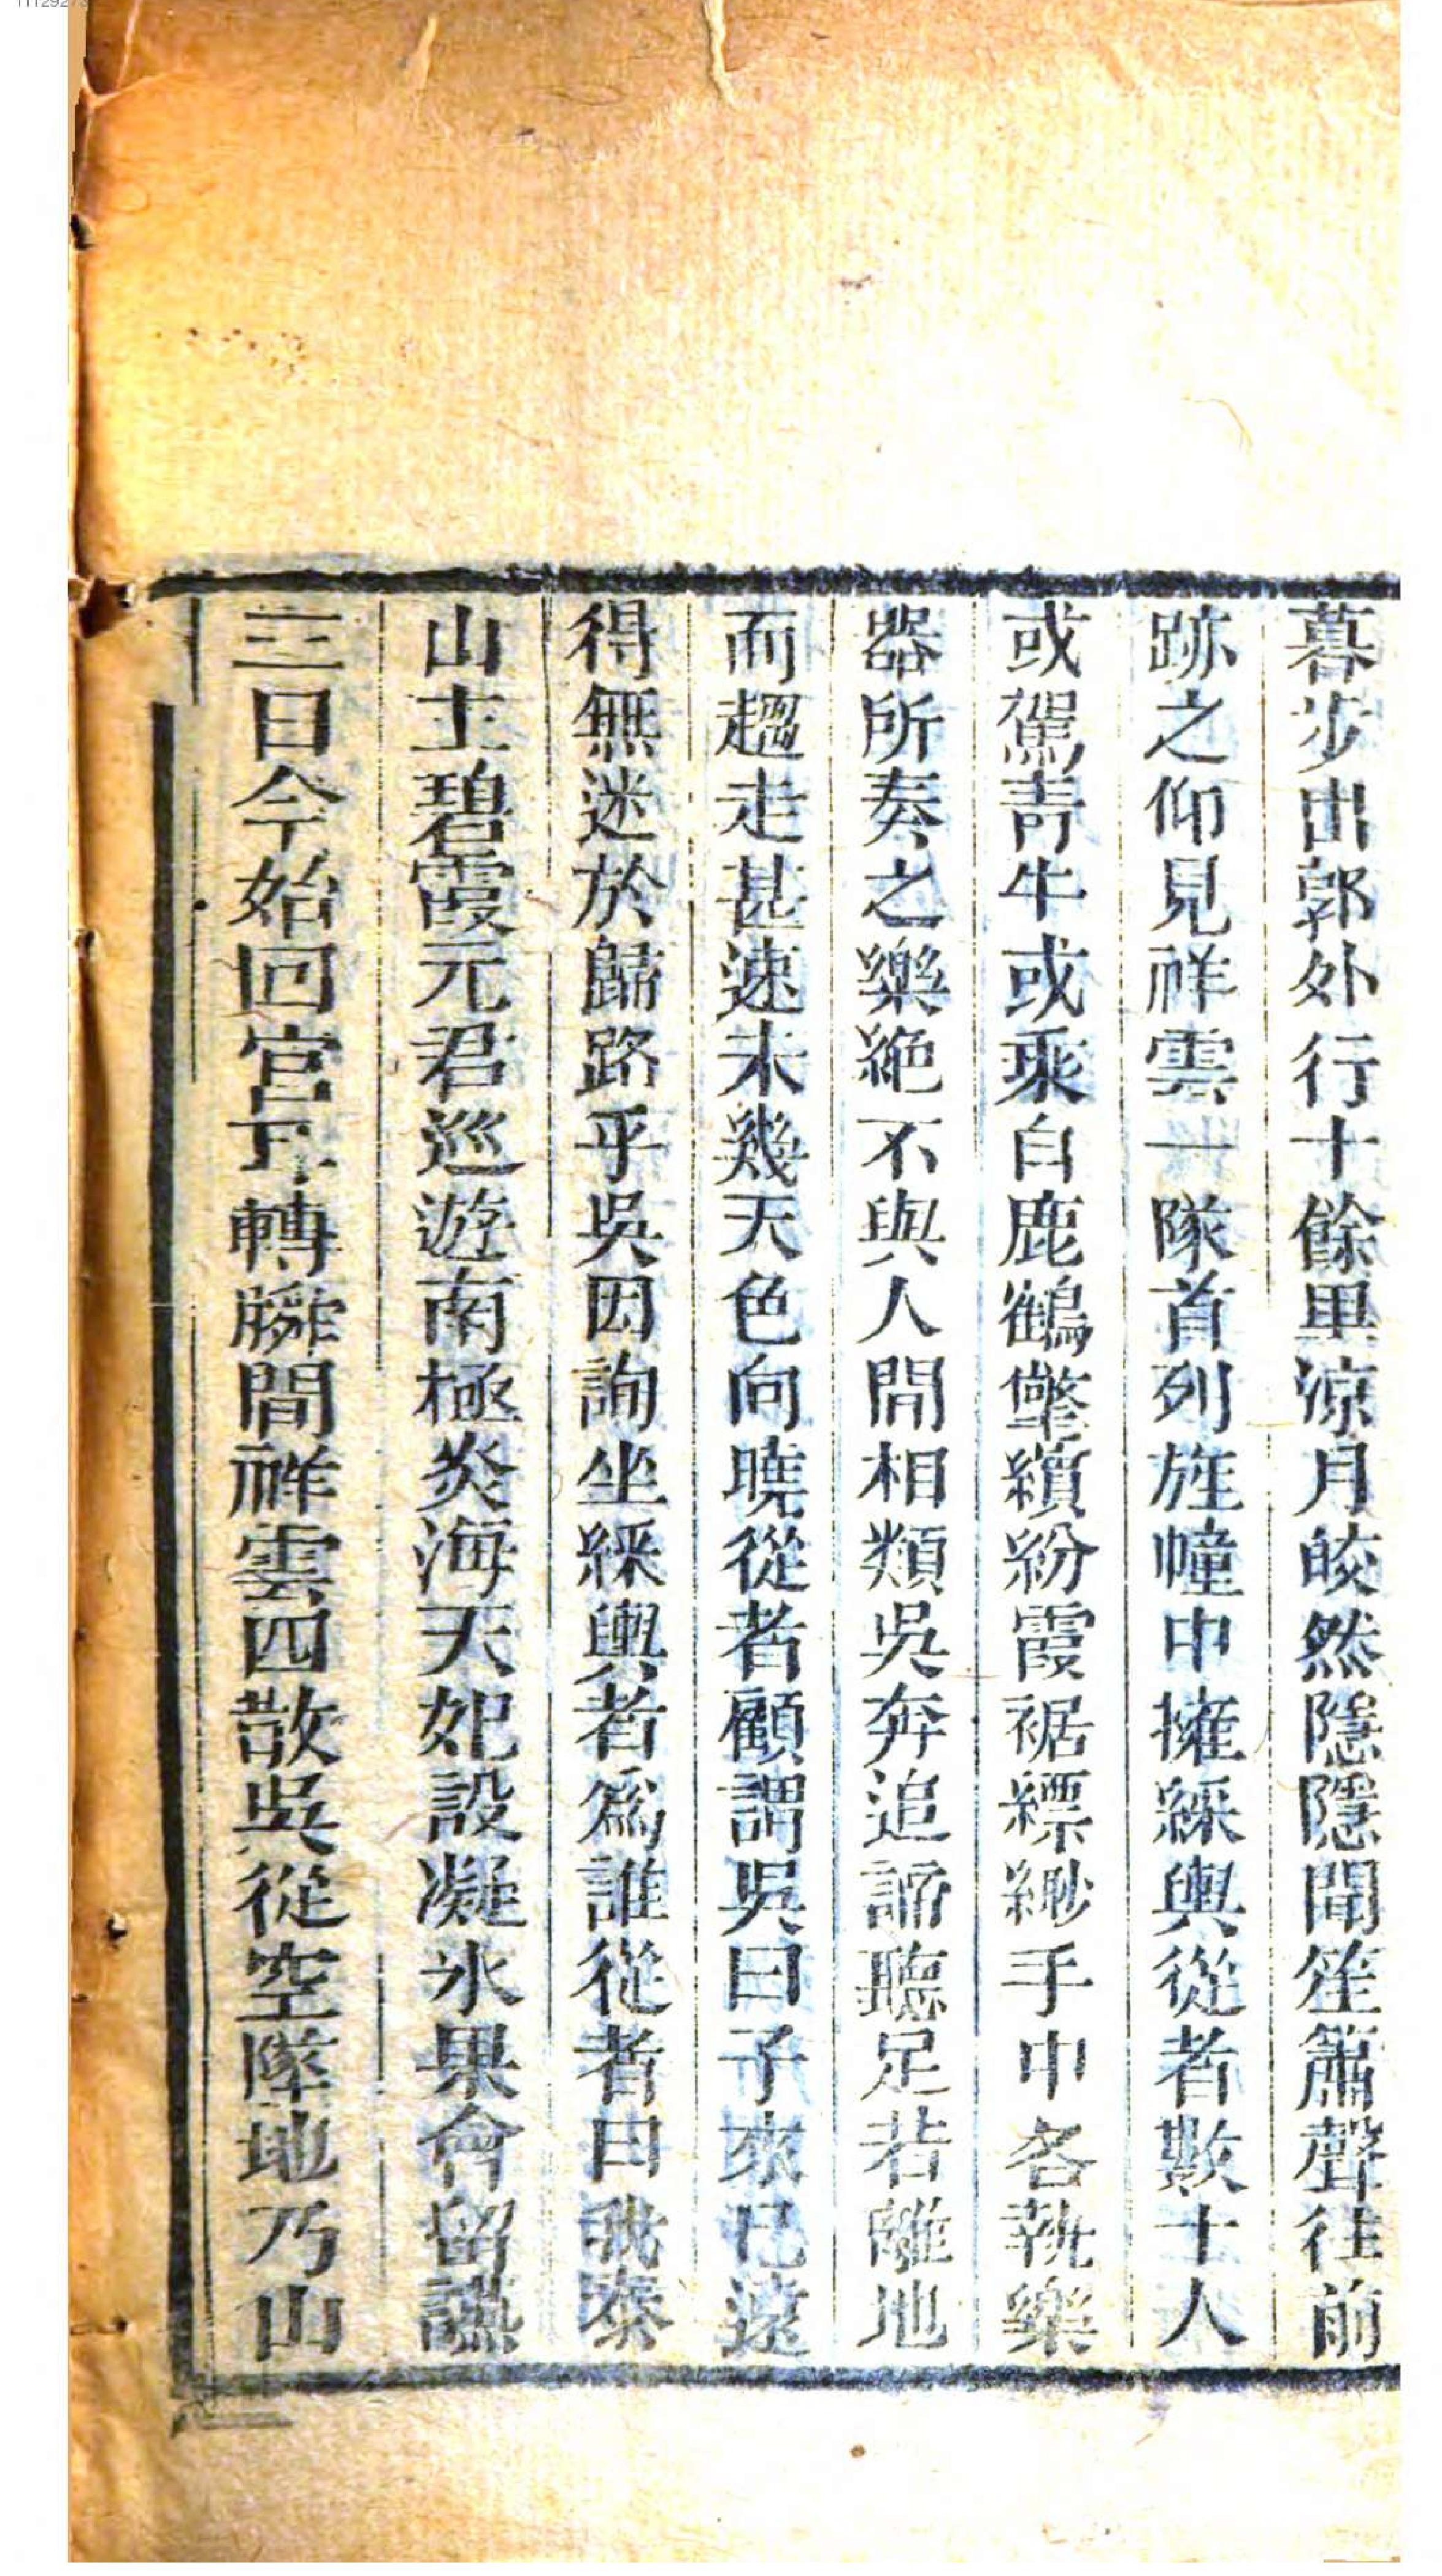 暮步出郭外行十餘里涼月皎然隱隱聞笙簫聲往前
跡之仰見祥雲一隊首列旌幢中擁綵輿從者數十人
或駕青牛或乘白鹿鶴氅繽紛霞裾縹緲手中各執樂
器所奏之樂絕不與人間相類吳奔追諦聽足若離地
而趨走甚速未幾天色向曉從者顧謂吳曰子來已遠
得無迷於歸路乎吳因詢坐綵輿者為誰從者曰我泰
山主碧霞元君巡遊南極炎海天妃設凝氷果會留讌
三日今始回宮耳轉瞬間祥雲四散吳從空墜地乃山